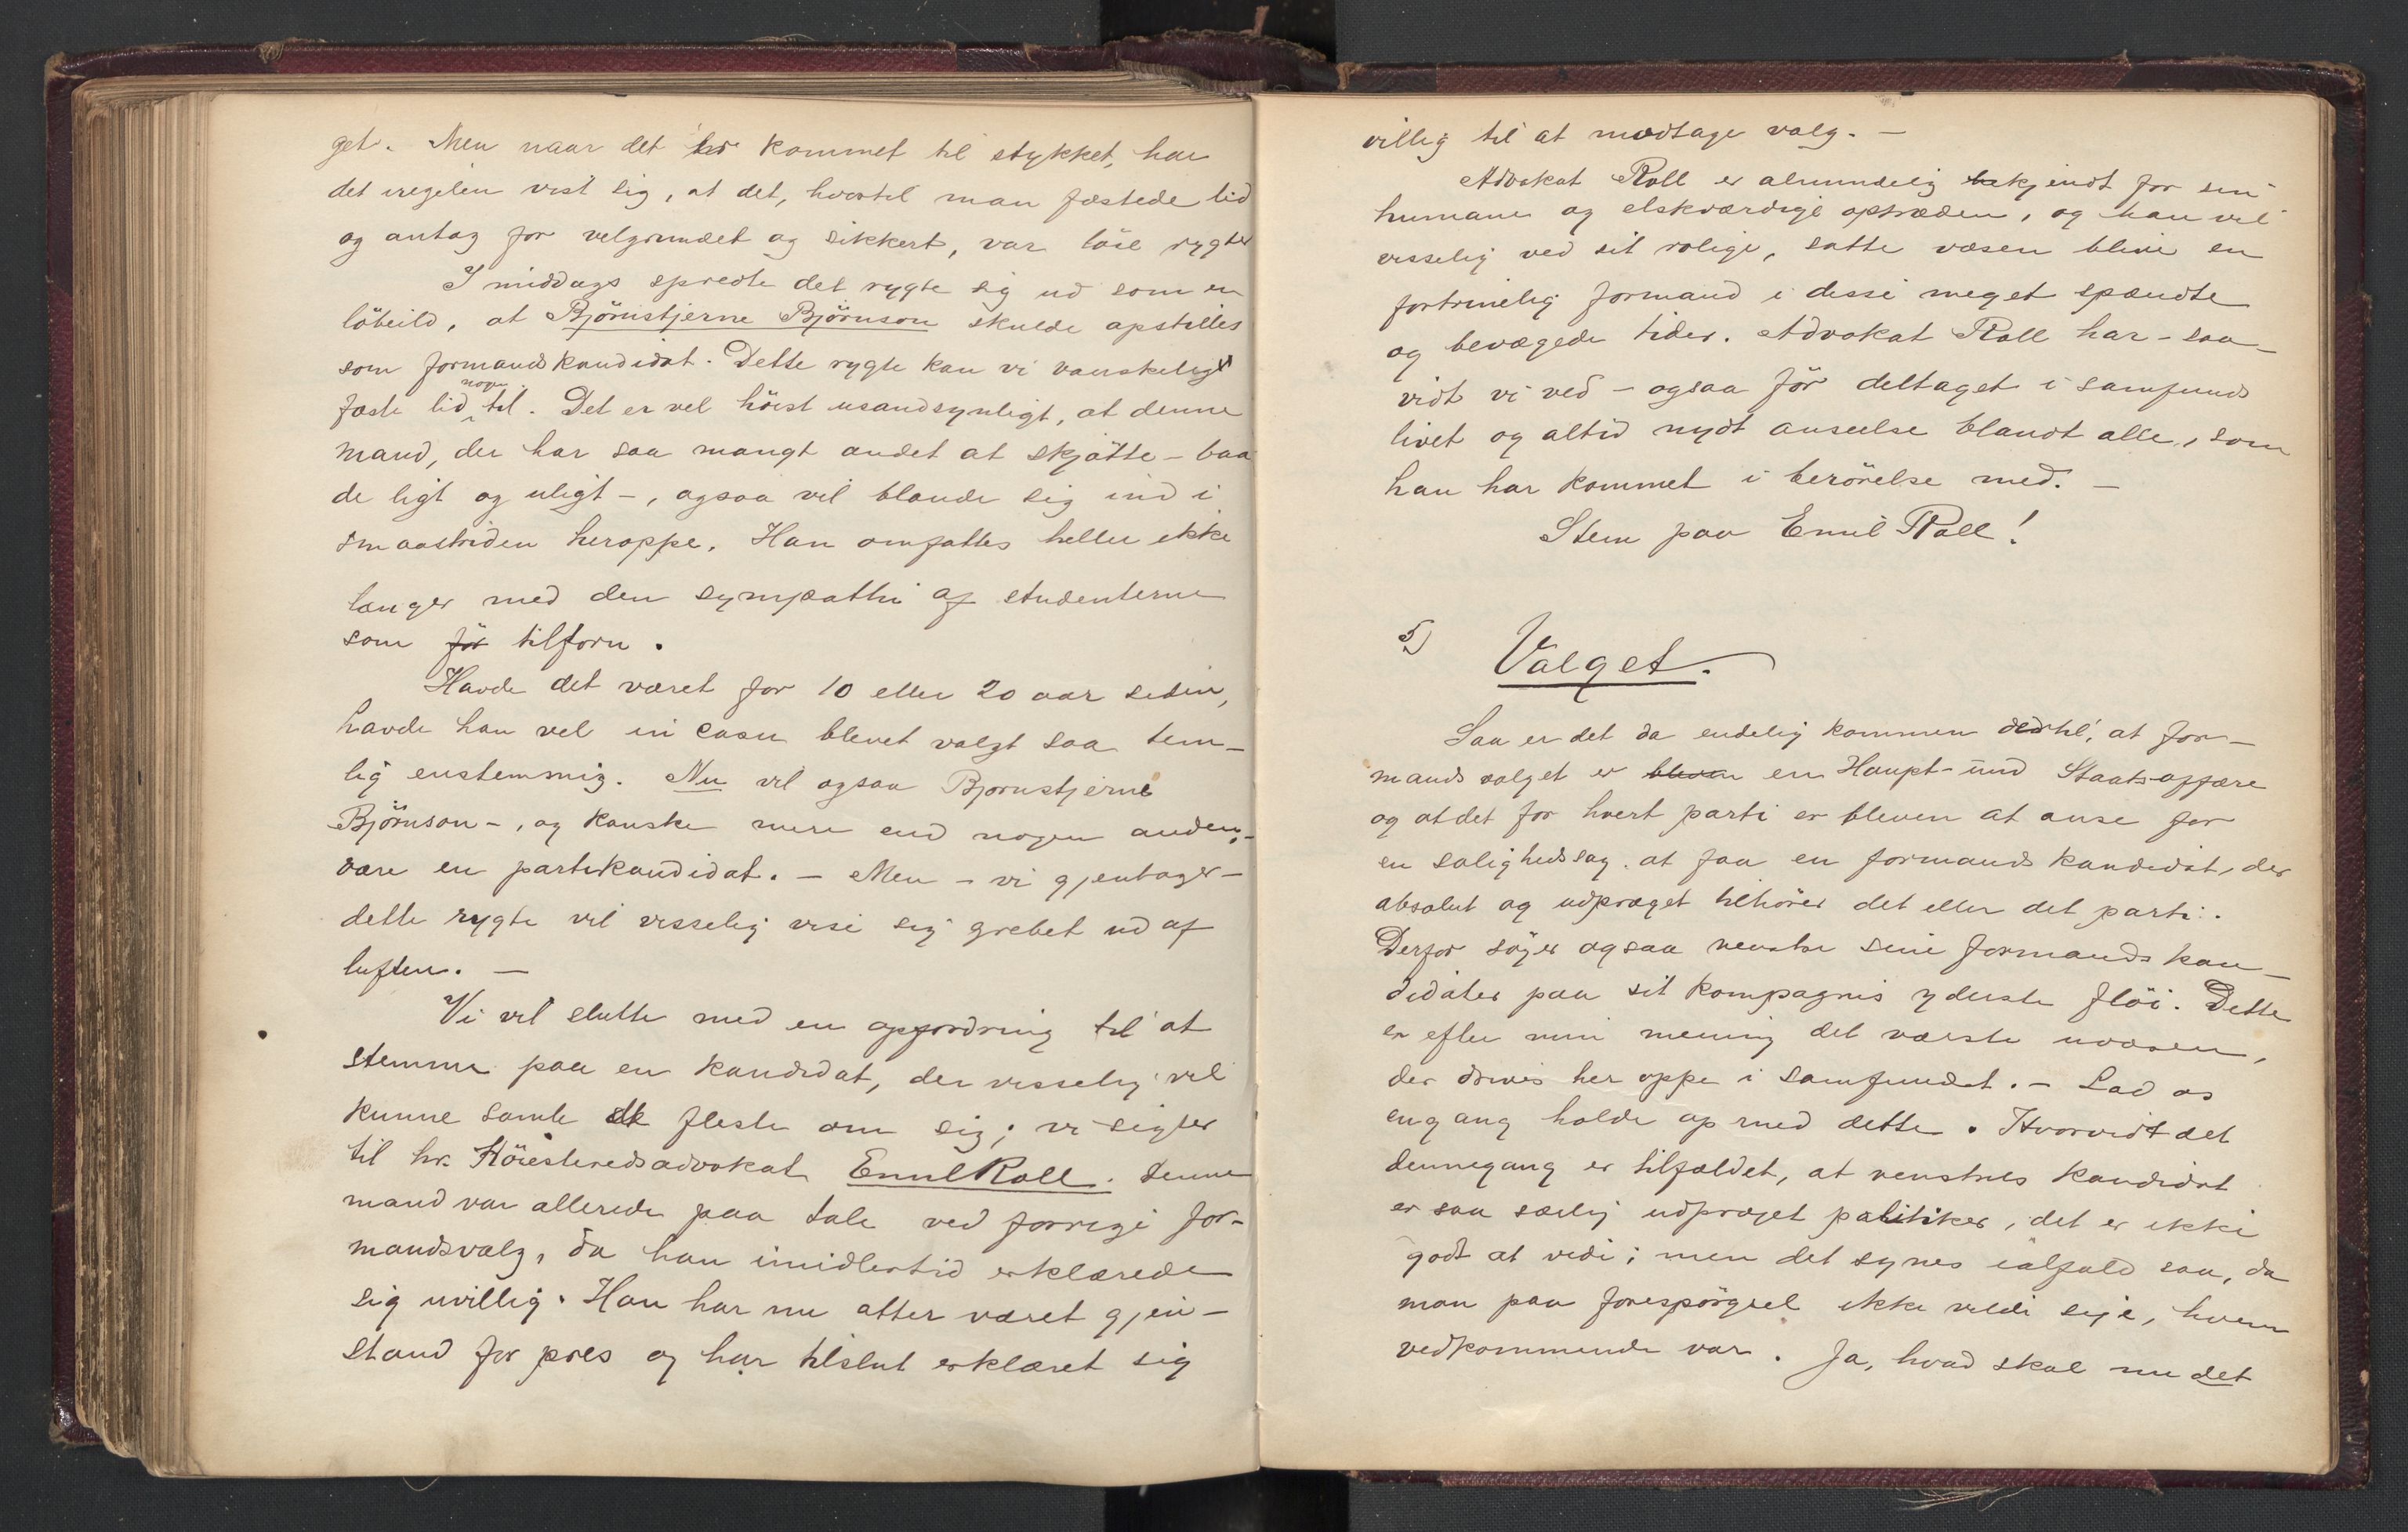 get. Men naar det har kommet til stykket, har
det iregelen vist sig, at det, hvortil man fæstede lid
og antog for velgrundet og sikkert, var löse rygter
I middags spredte det rygte sig ud som en
löbeild, at Björnstjerne Björnson skulde opstilles
som formandskandidat. Dette rygte kan vi vanskeligt
fæste lid nogen til. Det er vel höist usandsynligt, at denne
mand, der har saa mangt andet at skjötte - baa
de ligt og uligt -, ogsaa vil blande sig ind i
smaastriden heroppe. Han omfattes heller ikke
længer med den sympathi af studenterne
som för tilforn.
Havde det været for 10 eller 20 aar siden,
havde han vel in casu blevet valgt saa tem-
lig enstemmig. Nu vil ogsaa Bjørnstjerne
Björnson -, og kanske mere end nogen anden, -
være en partikandidat. - Men - vi gjentager -
dette rygte vil visselig vise sig grebet ud af
luften. -
Vi vil slutte med en opfordring til at
stemme paa en kandidat, der visselig vil
kunne samle de fleste om sig; vi sigter
til hr. Höiesteredsadvokat Emil Roll. Denne
mand var allerede paa tale ved forrige for-
mandsvalg, da han imidlertid erklærede
sig uvillig. Han har nu atter været gjen-
stand for pres og har tilslut erklæret sig
villig til at modtage valg. -
Advokat Roll er almindelig bekjendt for sin
humane og elskværdige optræden, og han vil
visselig ved sit rolige, satte væsen blive en
fortrinelig formand i disse meget spændte
og bevægede tider. Advokat Roll har - saa-
vidt vi ved - ogsaa för deltaget i samfunds
livet og altid nydt anseelse blandt alle, som
han har kommet i berörelse med. -
Stem paa Emil Roll!
5) Valget.
Saa er det da endelig kommen dertil, at for-
mandsvalget er bleven en Haupt- und Staatsaffære
og at det for hvert parti er bleven at anse for
en salighedssag at faa en formandskandidat, der
absolut og udpræget tilhörer det eller det parti.
Derfor söger ogsaa venstre sine formandskan-
didater paa sit kompagnis yderste flöi. Dette
er efter min mening det værste uvæsen,
der drives her oppe i Samfundet. - Lad os
engang holde op med dette. Hvorvidt det
dennegang er tilfældet, at venstres kandidat
er saa særlig udpræget politiker, det er ikke
godt at vide; men det synes ialfald saa, da
man paa forespörgsel ikke vilde sige, hvem
vedkommende var. Ja, hvad skal nu det